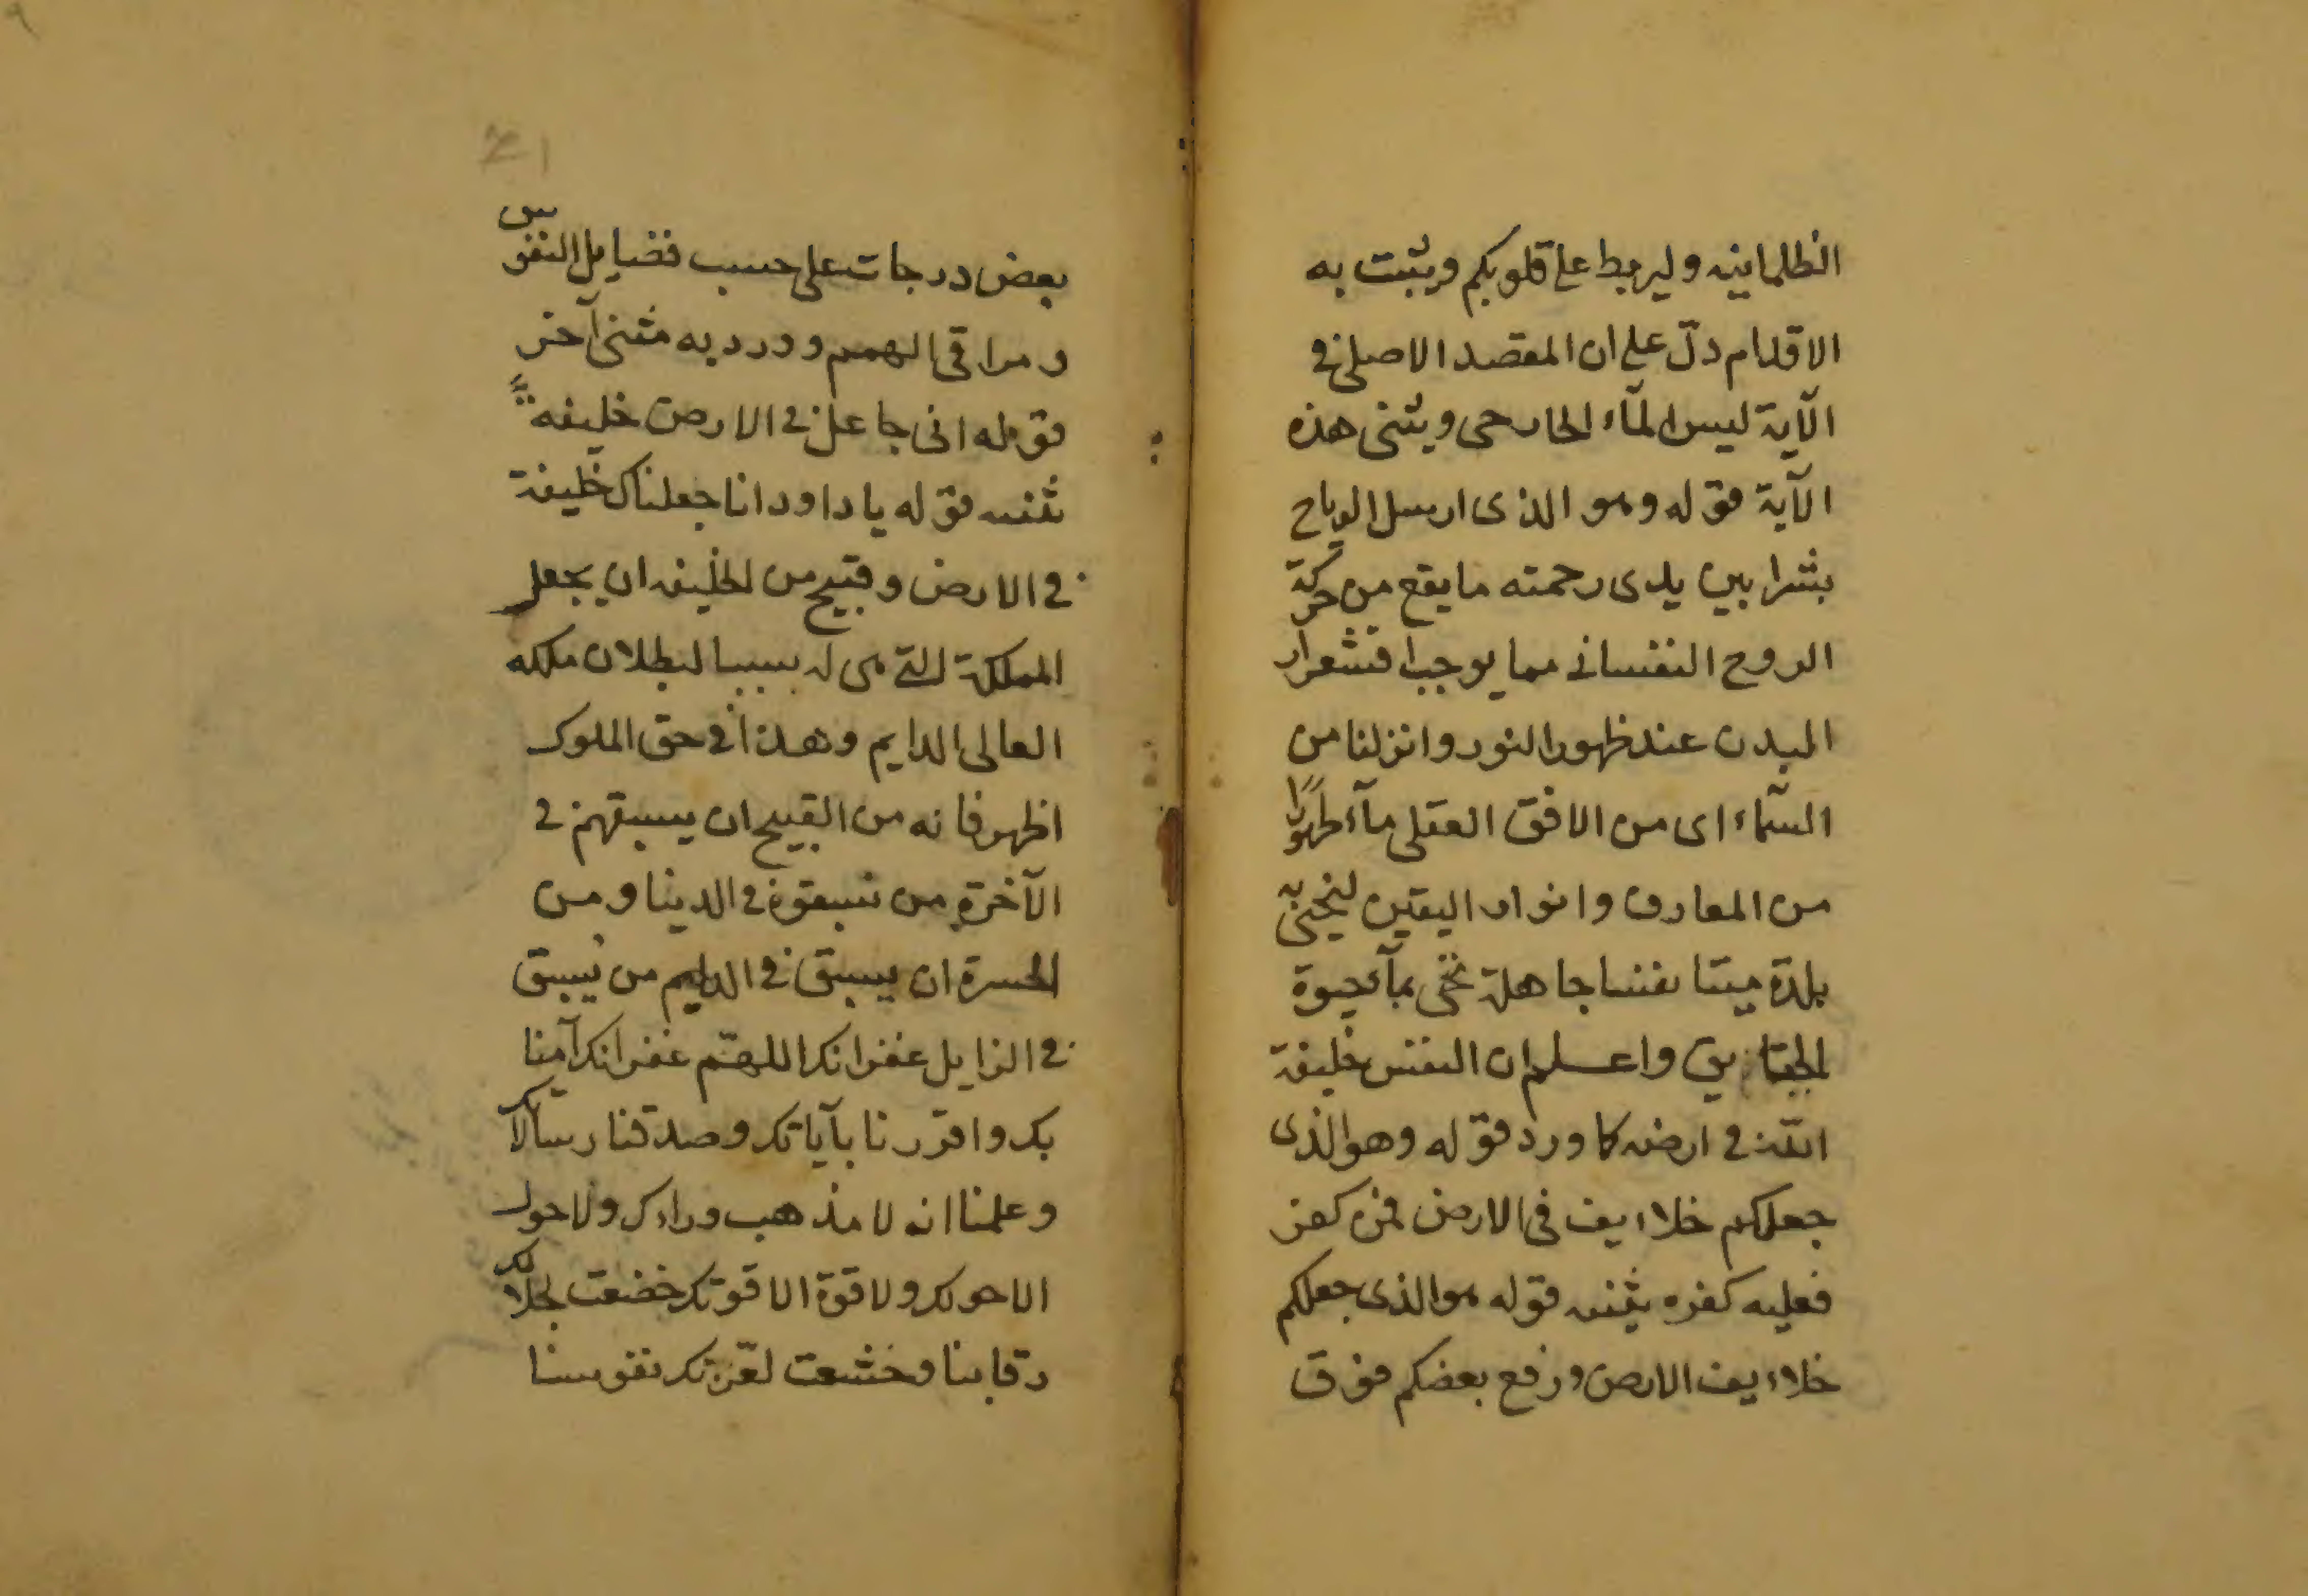 الظلمانية وليربط على قلوبكم ويثبت به
الاقدام دلّ على ان المقصد الاصلى فى
الآية ليس المآء الخارجى ويثنى هذه
الآية قوله وهو الذى ارسل الرياح
بشرا بين يدى رحمته ما يقع من حركة
الروح النفسانى مما يوجب اقشعرار
البدن عند ظهور النور وانزلنا من
السّمآء اى من الافق العقلى مآء طهورًا
من المعارف وانوار اليقين لنحيى به
بلدة ميتا نفسا جاهلة تحى بمآء حيوة
الحقايق واعلم ان النفس خليفة
اللّه فى ارضه كما ورد قوله وهو الذى
جعلكم خلاءيف فى الارض فمن كفر
فعليه كفره يثنيه قوله هو الذى جعلكم
خلاءيف الارض ورفع بعضكم فوق
بعض درجات على حسب فضايل النفوس
ومراقى الهمم وورد به مثنى آخر
قوله انى جاعل فى الارض خليفة
ثنيه قوله يا داود انا جعلناك خليفة
فى الارض وقبيح من الخليفة ان يجعل
المملكة التى هى له سببا لبطلان ملكه
العالى الدايم وهذا فى حق الملوك
اظهر فانه من القبيح ان يسبقهم فى
الآخرة من سبقوه فى الدنيا ومن
الحسرة ان يسبق فى الدايم من يسبق
فى الزايل غفرانك اللهمّ غفرانك آمنا
بك واقررنا بآياتك وصدقنا رسالاتك
وعلمنا انه لا مذهب وراءك ولا حول
الا حولك ولا قوة الا قوتك خضعت لجلالك
رقابنا وخشعت لعزّتك نفوسنا